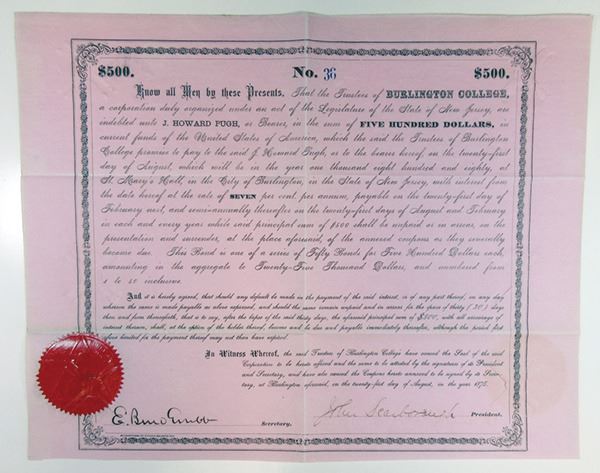 $500. No. 36 $500.
Know all Men by these Presents, That the Trustees of BURLINGTON COLLEGE,
a corporation duly organized under an act of the Legislature of the State of New Jersey, are
indebted unto J. HOWARD PUGH, or Bearer, in the sum of FIVE HUNDRED DOLLARS, in
current funds of the United States of America, which the said the Trustees of Burlington
College promise to pay to the said J. Howard Pugh, or to the bearer hereof, on the twenty-first
day of August, which will be in the year one thousand eight hundred and eighty, at
St. Mary's Hall, in the City of Burlington, in the State of New Jersey, with interest from
the date hereof at the rate of SEVEN per cent. per annum, payable on the twenty-first day of
February next, and semi-annually thereafter on the twenty-first days of August and February
in each and every year while said principal sum of $500 shall be unpaid or in arrear, on the
presentation and surrender, at the place aforesaid, of the annexed coupons as they severally
become due. This Bond is one of a series of Fifty Bonds for Five Hundred Dollars each,
amounting in the aggregate to Twenty-Five Thousand Dollars, and numbered from
1 to 50 inclusive.
And it is hereby agreed, that should any default be made in the payment of the said interest, or of any part thereof, on any day
whereon the same is made payable as above expressed, and should the same remain unpaid and in arrear for the space of thirty (30) days
then and from thenceforth, that is to say, after the lapse of the said thirty days, the aforesaid principal sum of $500, with all arrearage of
interest thereon, shall, at the option of the holder thereof, become and be due and payable immediately thereafter, although the period first
above limited for the payment thereof may not then have expired.
In Witness Whereof, the said Trustees of Burlington College have caused the Seal of the said
Corporation to be hereto affixed and the same to be attested by the signatures of its President
and Secretary, and have also caused the Coupons hereto annexed to be signed by its Secre-
tary, at Burlington aforesaid, on the twenty-first day of August, in the year 1875.
John Scarborough President.
E. Burd Grubb Secretary.